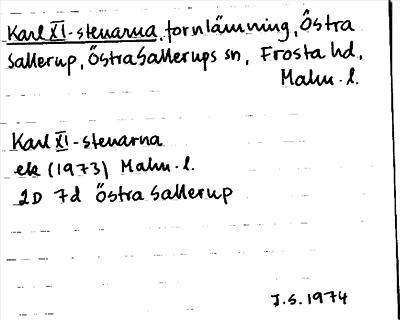 Karl XI-stenarna, fornlämning, Östra
Sallerup, Östra Sallerups sn, Frosta hd,
Malm. l.
Karl XI-stenarna
ek (1973) Malm. l.
2D 7d Östra Sallerup
J.S. 1974